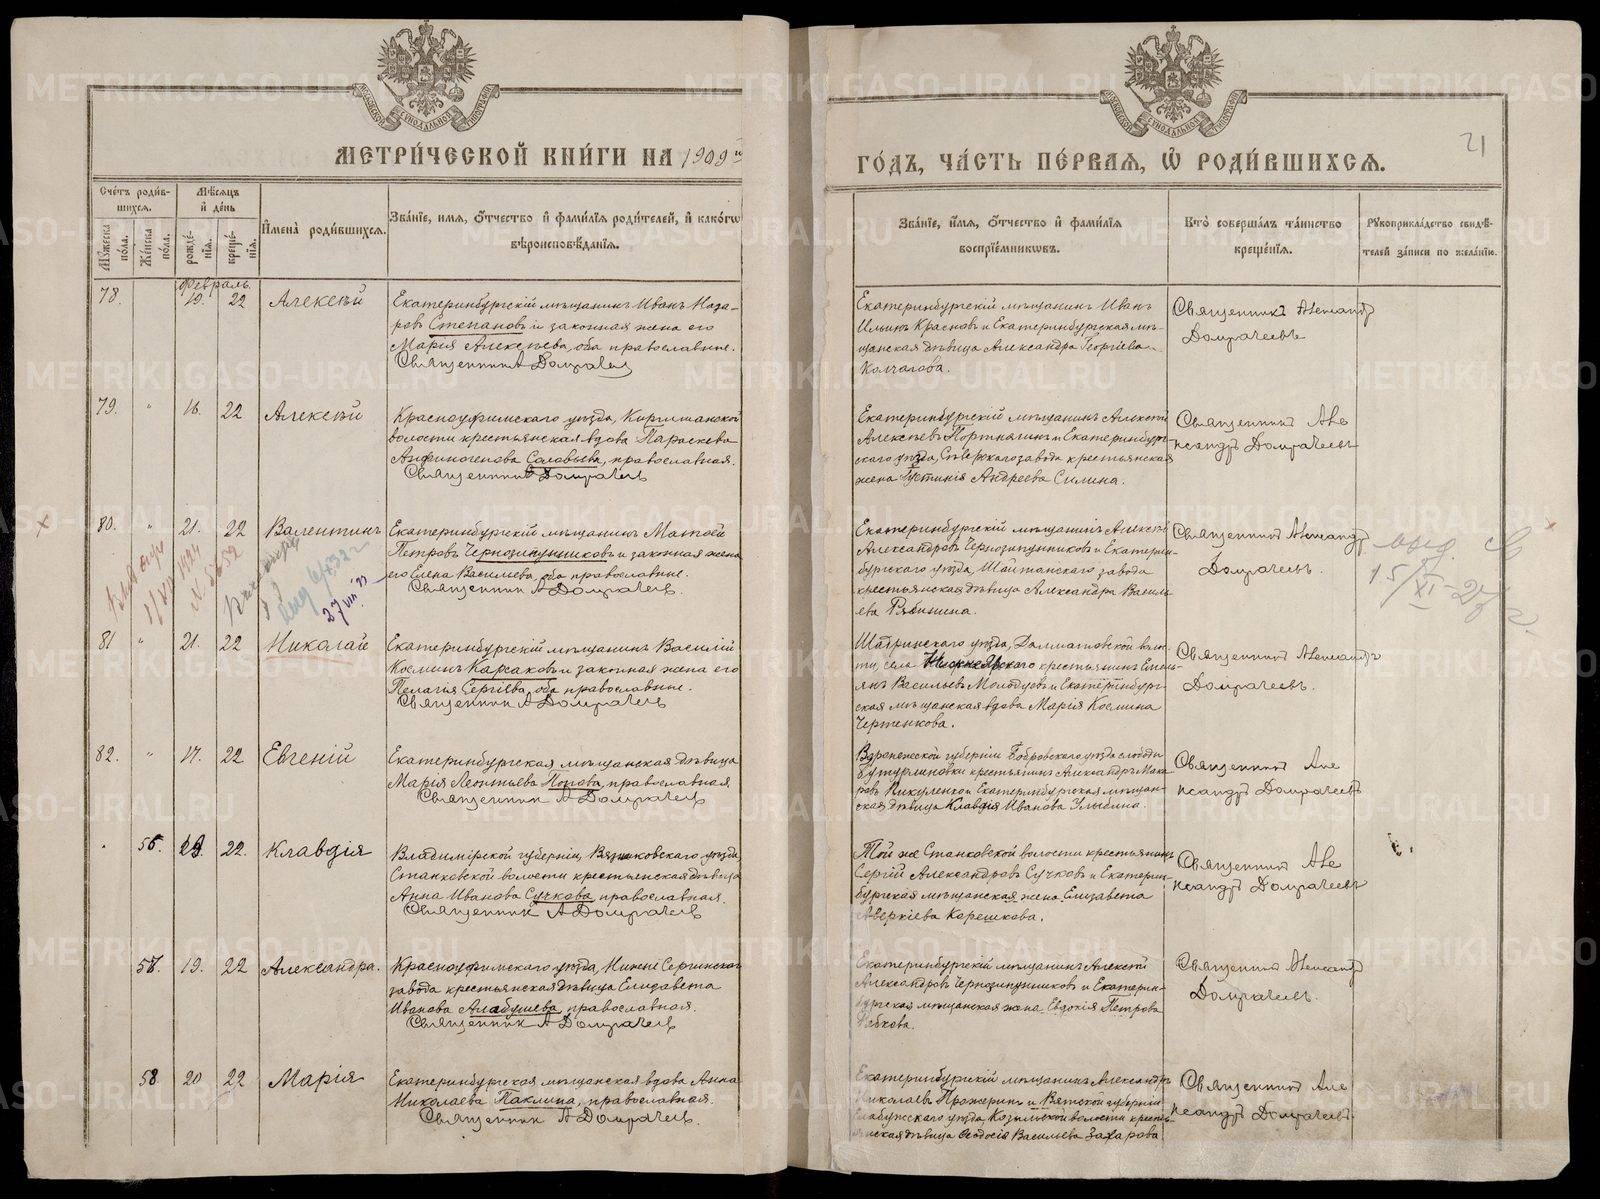 МЕТРИ́ЧЕСКОЙ КНИ́ГИ НА 1909й
ГО́ДЪ, ЧА́СТЬ ПЕ́РВАЯ, Ѡ РОДИ́ВШИХСЯ.
21
Сче́тъ роди́в-
шихся.
Мѣ́сяцъ
и҆ де́нь
И҆мена̀ роди́вшихся.
Зва́нїе, и҆мя, ѻ҆́тчество и҆ фами́лїя роди́телей, и҆ како́гѡ
вѣроисповѣ́данїя.
Мꙋ́жеска
по́ла.
Же́нска
по́ла.
рожде́-
нїя.
креще́-
нїя.
Зва́нїе, и҆мя, ѻ҆́тчество и҆ фами́лїя
воспрїе́мниковъ.
Кто̀ соверша́лъ та́инство
креще́нїя.
Рꙋкоприкла́дство свидѣ́-
телей за́писи по жела́нїю.
Февраль
78. 19. 22 Алексѣй
Екатеринбургскій мѣщанинъ Иванъ Наза-
ровъ Степановъ и законная жена его
Мария Алексѣева, оба православные.
Священникъ А Домрачев
Екатеринбургскій мѣщанинъ Иванъ
Ильинъ Красновъ и Екатеринбургская мѣ-
щанская дѣвица Александра Георгіева
Колчагова.
Священникъ Александр
Домрачеевъ
79. " 16. 22 Алексѣй
Красноуфимскаго уѣзда, Киргишанской
волости крестьянская вдова Параскева
Анфиногенова Соловьева, православная.
Священник А Домрачеев
Екатеринбургскій мѣщанинъ Алексѣй
Алексѣевъ Портнягинъ и Екатеринбург-
скаго уѣзда, Сѣверскаго завода крестьянская
жена Іустинія Андреева Силина.
Священник Але
ксандръ Домрачеевъ
80. " 21. 22 Валентинъ
Екатеринбургскій мѣщанинъ Матѳей
Петровъ Чернозипунниковъ и законная жена
его Елена Васильева, оба православные.
Священник А Домрачеев.
27 VIII
Екатеринбургскій мѣщанинъ Алексѣй
Александровъ Чернозипунниковъ и Екатерин-
бургскаго уѣзда, Шайтанскаго завода
крестьянская дѣвица Александра Василь-
ева Рябинина.
Священник Александр
Домрачеевъ.
15/XI-27 г.
81 " 21. 22 Николай
Екатеринбургскій мѣщанинъ Василій
Косминъ Карсаковъ и законная жена его
Пелагія Сергіева, оба православные.
Священник А Домрачеев
Шадринскаго уѣзда, Долматовской волос-
ти, села Нижнеярскаго крестьянинъ Емель-
янъ Васильевъ Молодцевъ и Екатеринбург-
ская мѣщанская вдова Марія Космина
Чертенкова.
Священник Александръ
Домрачеевъ.
82. " 17. 22 Евгеній
Екатеринбургская мѣщанская дѣвица
Марія Леонтьевъ Попова, православная
Священник А Домрачеев
Воронежской губерніи Бобровскаго уѣзда слободы
Бутурлиновки крестьянинъ Александръ Мака-
ровъ Никуленко и Екатеринбургская мѣщан-
ская дѣвица Клавдія Иванова Улыбина.
Священник Але
ксандръ Домрачеевъ
56. 19. 22. Клавдія
Владимірской губерніи, Вязниковскаго уѣзда,
Станковской волости крестьянская дѣвица
Анна Иванова Сучкова, православная.
Священник А Домрачеев
Той же Станковской волости крестьянинъ
Сергій Александровъ Сучковъ и Екатерин-
бургская мѣщанская жена Елизавета
Аверкіева Корешкова.
Священник Але
ксандръ Домрачеевъ
57. 19. 22 Александра.
Красноуфимскаго уѣзда, Нижне Сергинскаго
завода крестьянская дѣвица Елизавета
Иванова Алабушева, православная.
Священник А Домрачеев
Екатеринбургскій мѣщанинъ Алексѣй
Александровъ Чернозипунниковъ и Екатерин-
бургская мѣщанская жена Евдокія Петрова
Рябкова.
Священник Александр
Домрачеев.
58 20 22 Марія
Екатеринбургская мѣщанская вдова Анна
Николаева Паклина, православная.
Священник А Домрачеев.
Екатеринбургскій мѣщанинъ Александръ
Николаевъ Прожеринъ и Вятской губерніи
Елабужскаго уѣзда, Козыльской волости кресть-
янская дѣвица Ѳеодосія Васильева Захарова
Священник Але
ксандръ Домрачеевъ.
METRIKI.GASO-URAL.RU